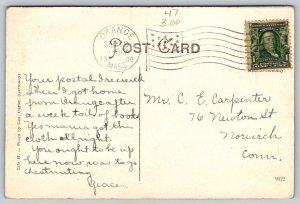 47
3.00
ORANGE
MASS.
POST CARD
Your postal I received
when I got home
from Orange after
a week toil of looks
Yes mama got the
cloth all right.
You ought to be up
here now roads
Grace.
Mr. C. E. Carpenter
76 Newton St
Norwich
Conn.